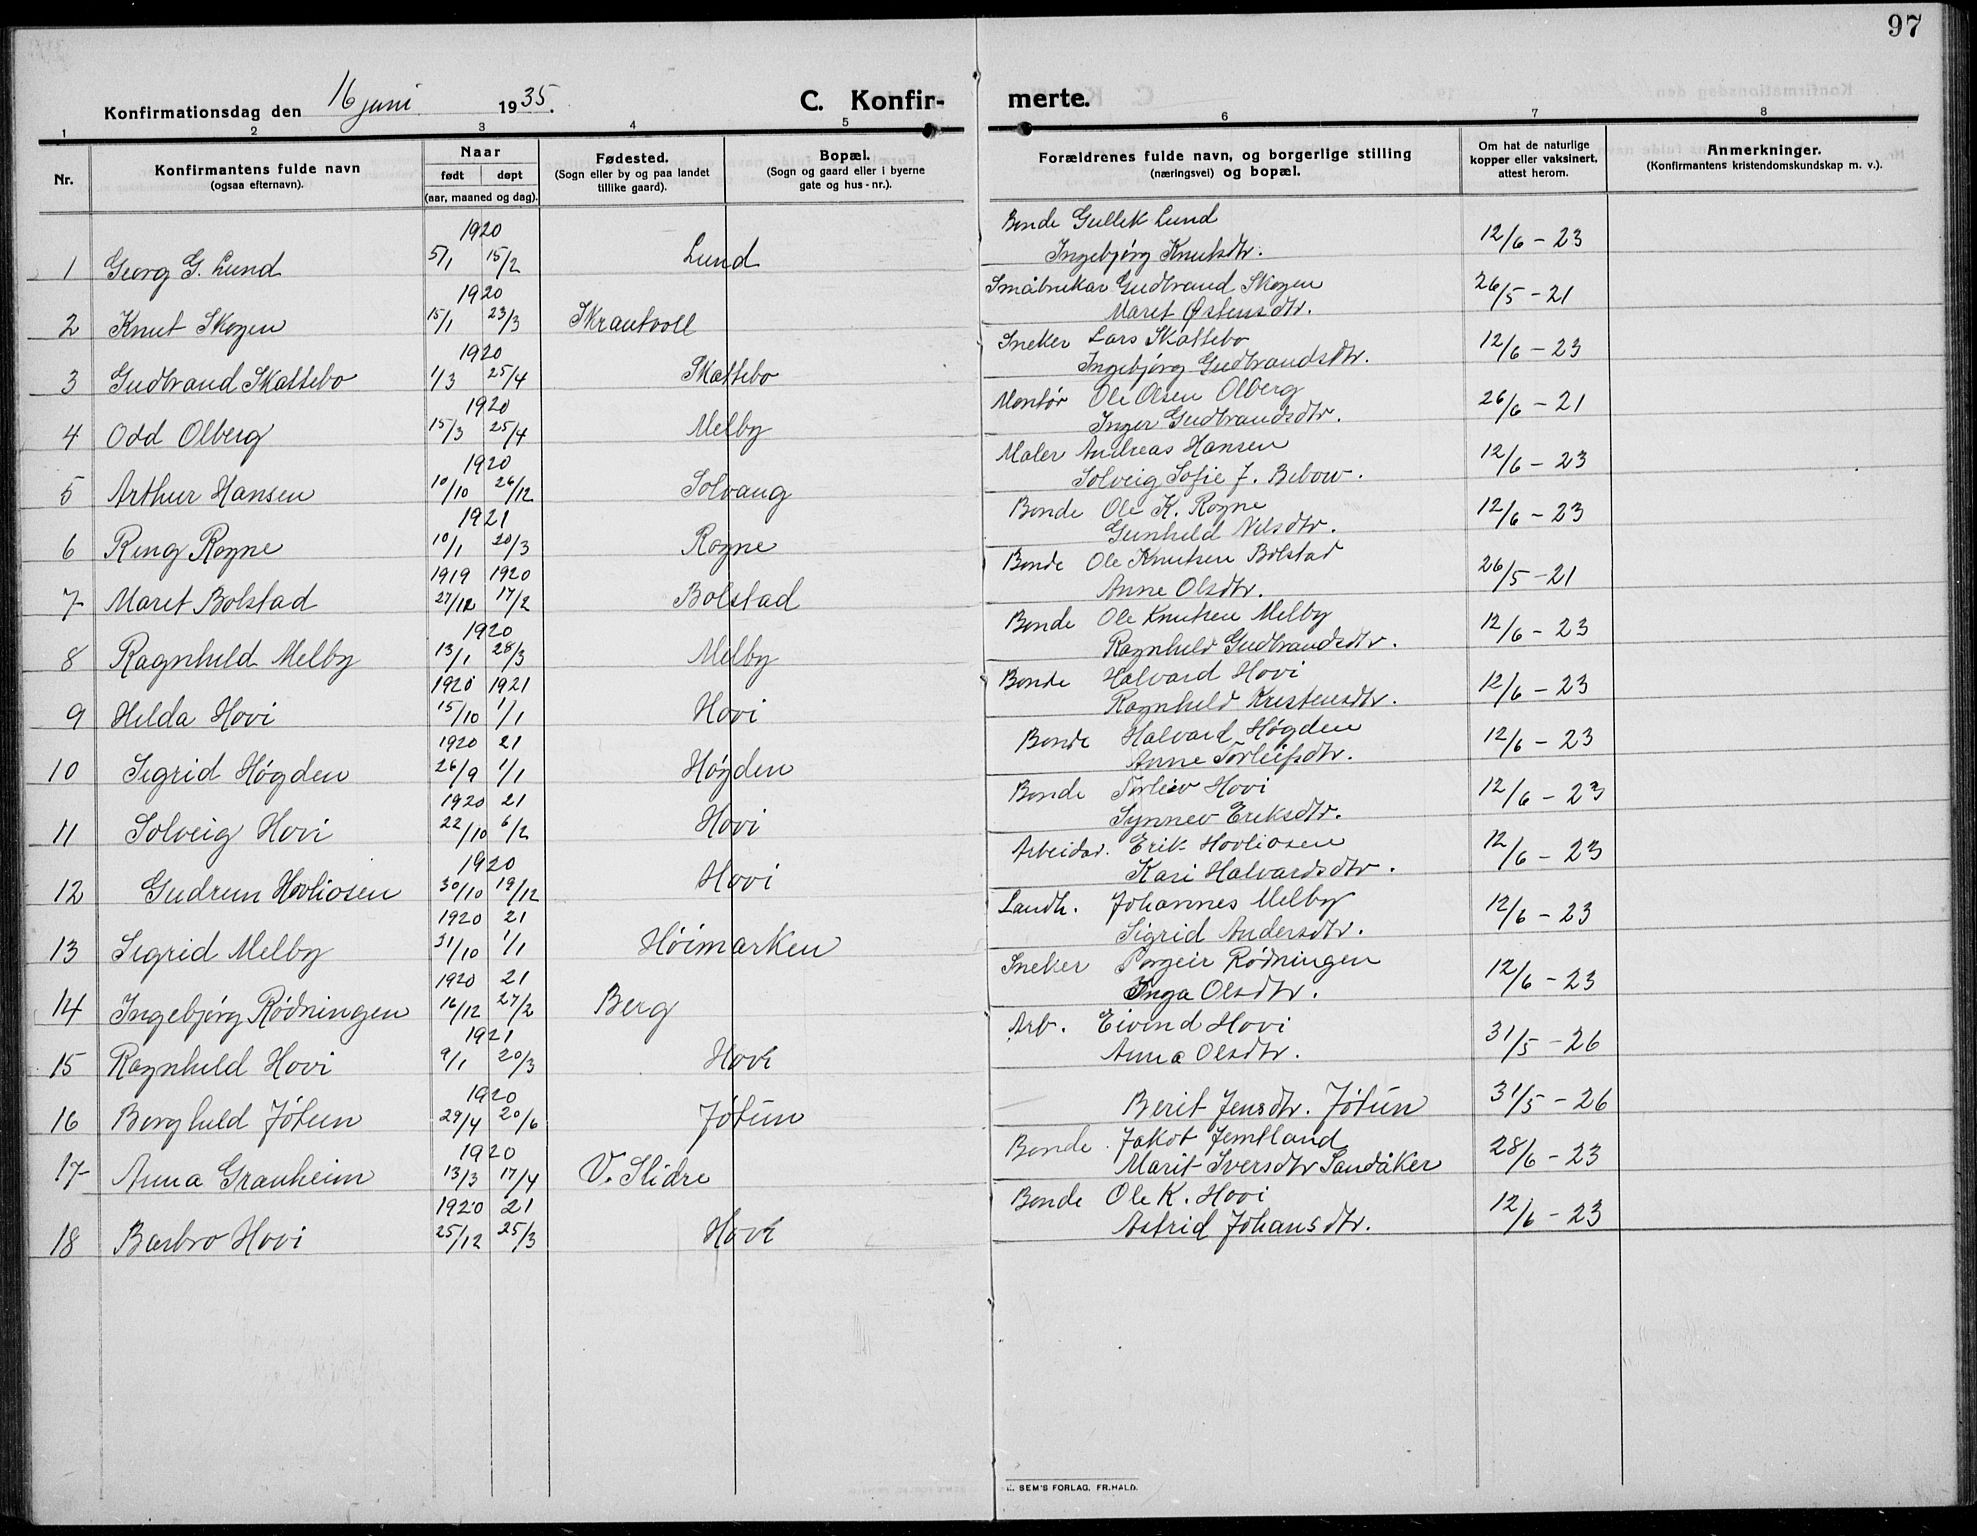 97
Konfirmationsdag den 16 juni 1935.
C. Konfir-merte.
1 2 3 4 5 6 7 8
Nr.
Konfirmantens fulde navn
(ogsaa efternavn).
Naar
født døpt
(aar, maaned og dag).
Fødested.
(Sogn eller by og paa landet
tillike gaard).
Bopæl.
(Sogn og gaard eller i byerne
gate og hus-nr.).
Forældrenes fulde navn, og borgerlige stilling
(næringsvei) og bopæl.
Om hat de naturlige
kopper eller vaksinert,
attest herom.
Anmerkninger.
(Konfirmantens kristendomskundskap m. v.).
1920
1 Georg G. Lund 5/1 15/2 Lund
Bonde Gullik Lund
Ingebjørg Knutsdtr. 12/6 - 23
1920
2 Knut Skogen 15/1 23/3 Skrautvoll
Småbrukar Gudbrand Skogen
Marit Østensdtr. 26/5 - 21
1920
3 Gudbrand Skattebo 1/3 25/4 Skattebo
Sneker Lars Skattebo
Ingebjørg Gudbrandsdtr. 12/6 - 23
1920
4 Odd Olberg 15/3 25/4 Melby
Montør Ole Olsen Olberg
Inger Gudbrandsdtr. 26/6 - 21
1920
5 Arthur Hansen 10/10 26/12 Solvang
Maler Andreas Hansen
Solveig Sofie J. Bebow. 12/6 - 23
1921
6 Ring Rogne 10/1 20/3 Rogne
Bonde Ole K. Rogne
Gunhild Nilsdtr. 12/6 - 23
1919 1920
7 Marit Bolstad 27/12 17/2 Bolstad
Bonde Ole Knutsen Bolstad
Anne Olsdtr. 26/5 - 21
1920
8 Ragnhild Melby 13/1 28/3 Melby
Bonde Ole Knutsen Melby
Ragnhild Gudbrandsdtr. 12/6 - 23
1920 1921
9 Hilda Hovi 15/10 1/1 Hovi
Bonde Halvard Hovi
Ragnhild Kristensdtr. 12/6 - 23
1920 21
10 Sigrid Høgden 26/9 1/1 Høgden
Bonde Halvard Høgden
Anne Torleifsdtr. 12/6 - 23
1920 21
11 Solveig Hovi 22/10 6/2 Hovi
Bonde Torleiv Hovi
Synnev Eriksdtr. 12/6 - 23
1920
12 Gudrun Hovliosen 30/10 19/12 Hovi
Arbeidar. Erik Hovliosen
Kari Halvardsdtr. 12/6 - 23
1920 21
13 Sigrid Melby 31/10 1/1 Høimarken
Landh. Johannes Melby
Sigrid Andersdtr. 12/6 - 23
1920 21
14 Ingebjørg Rødningen 16/12 27/2 Berg
Sneker Torgeir Rødningen
Inga Olsdtr. 12/6 - 23
1921
15 Ragnhild Hovi 9/1 20/3 Hovi
Arb. Eivind Hovi
Anna Olsdtr. 31/5 - 26
1920
16 Borghild Jøtun 29/4 20/6 Jøtun
Berit Jensdtr. Jøtun 31/5 - 26
1920
17 Anna Granheim 13/3 17/4 V. Slidre
Bonde. Jakob Jemtland
Marit Iversdtr Sandåker 28/6 - 23
1920 21
18 Barbro Hovi 25/12 25/3 Hovi
Bonde Ole K. Hovi
Astrid Johansdtr. 12/6 - 23
SEM'S FORLAG, FR.HALD.